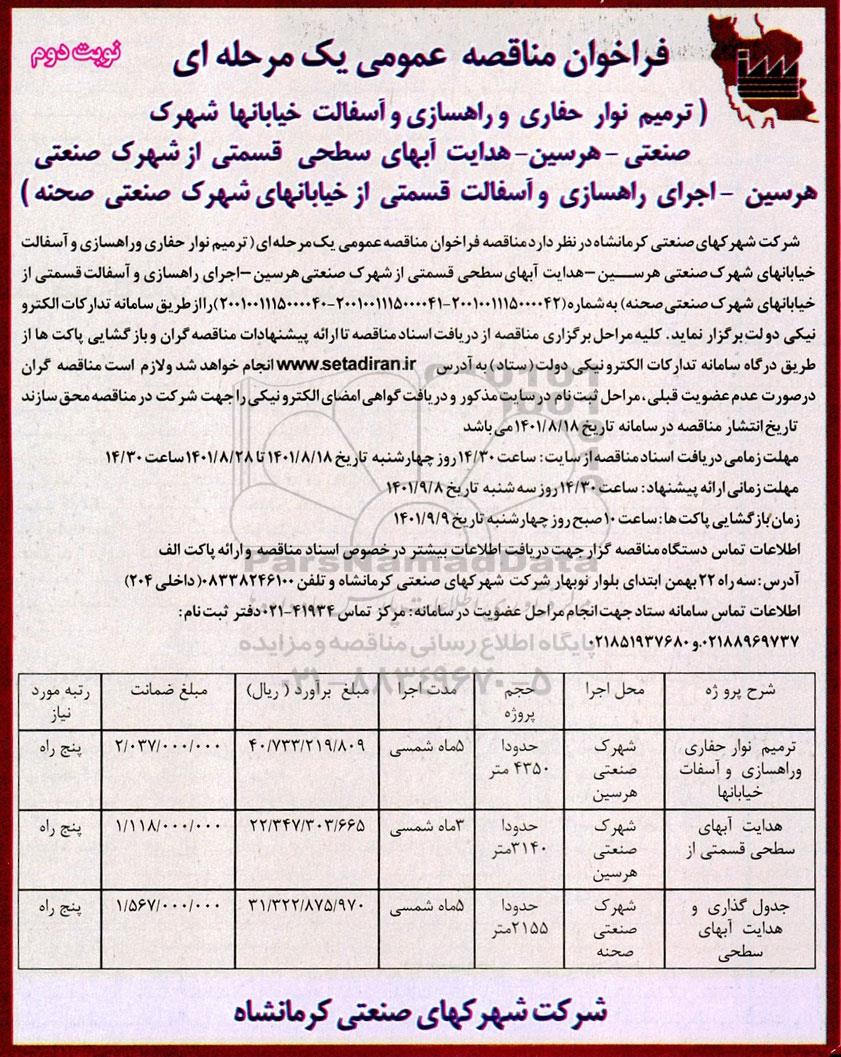 نوبت دوم
فراخوان مناقصه عمومی یک مرحله ای
( ترمیم نوار حفاری و راهسازی و آسفالت خیابانها شهرک
صنعتی - هرسین - هدایت آبهای سطحی قسمتی از شهرک صنعتی
هرسین - اجرای راهسازی و آسفالت قسمتی از خیابانهای شهرک صنعتی صحنه )
شرکت شهرکهای صنعتی کرمانشاه در نظر دارد مناقصه فراخوان مناقصه عمومی یک مرحله ای ( ترمیم نوار حفاری وراهسازی و آسفالت
خیابانهای شهرک صنعتی هرسین –هدایت آبهای سطحی قسمتی از شهرک صنعتی هرسین –اجرای راهسازی و آسفالت قسمتی از
خیابانهای شهرک صنعتی صحنه) به شماره (۲۰۰۱۰۰۱۱۱۵۰۰۰۰۴۲-۲۰۰۱۰۰۱۱۱۵۰۰۰۰۴۱-۲۰۰۱۰۰۱۱۱۵۰۰۰۰۴۰) را از طریق سامانه تدارکات الکترو
نیکی دولت برگزار نماید. کلیه مراحل برگزاری مناقصه از دریافت اسناد مناقصه تا ارائه پیشنهادات مناقصه گران و بازگشایی پاکت ها از
طریق درگاه سامانه تدارکات الکترونیکی دولت (ستاد) به آدرس www.setadiran.ir انجام خواهد شد ولازم است مناقصه گران
درصورت عدم عضویت قبلی، مراحل ثبت نام در سایت مذکور و دریافت گواهی امضای الکترونیکی را جهت شرکت در مناقصه محق سازند
تاریخ انتشار مناقصه در سامانه تاریخ ۱۴۰۱/۸/۱۸ می باشد
مهلت زمامی دریافت اسناد مناقصه از سایت: ساعت ۱۴/۳۰ روز چهارشنبه تاریخ ۱۴۰۱/۸/۱۸ تا ۱۴۰۱/۸/۲۸ ساعت ۱۴/۳۰
مهلت زمانی ارائه پیشنهاد: ساعت ۱۴/۳۰ روز سه شنبه تاریخ ۱۴۰۱/۹/۸
زمان بازگشایی پاکت ها: ساعت ۱۰ صبح روز چهارشنبه تاریخ ۱۴۰۱/۹/۹
اطلاعات تماس دستگاه مناقصه گزار جهت دریافت اطلاعات بیشتر در خصوص اسناد مناقصه و ارائه پاکت الف
آدرس: سه راه ۲۲ بهمن ابتدای بلوار نوبهار شرکت شهرکهای صنعتی کرمانشاه و تلفن ۰۸۳۳۸۲۴۶۱۰۰ (داخلی ۲۰۴)
اطلاعات تماس سامانه ستاد جهت انجام مراحل عضویت در سامانه: مرکز تماس ۴۱۹۳۴-۰۲۱ دفتر ثبت نام:
۰۲۱۸۸۹۶۹۷۳۷ و ۰۲۱۸۵۱۹۳۷۶۸۰
ParsNamadData
پایگاه اطلاع رسانی مناقصه و مزایده
۰۲۱-۸۸۳۴۹۶۷۰-۵
شرح پروژه | محل اجرا | حجم پروژه | مدت اجرا | مبلغ برآورد ( ریال) | مبلغ ضمانت | رتبه مورد نیاز
ترمیم نوار حفاری وراهسازی و آسفات خیابانها | شهرک صنعتی هرسین | حدودا ۴۳۵۰ متر | ۵ماه شمسی | ۴۰/۷۳۳/۲۱۹/۸۰۹ | ۲/۰۳۷/۰۰۰/۰۰۰ | پنج راه
هدایت آبهای سطحی قسمتی از | شهرک صنعتی هرسین | حدودا ۳۱۴۰متر | ۳ماه شمسی | ۲۲/۳۴۷/۳۰۳/۶۶۵ | ۱/۱۱۸/۰۰۰/۰۰۰ | پنج راه
جدول گذاری و هدایت آبهای سطحی | شهرک صنعتی صحنه | حدودا ۲۱۵۵متر | ۵ماه شمسی | ۳۱/۳۲۲/۸۷۵/۹۷۰ | ۱/۵۶۷/۰۰۰/۰۰۰ | پنج راه
شرکت شهرکهای صنعتی کرمانشاه